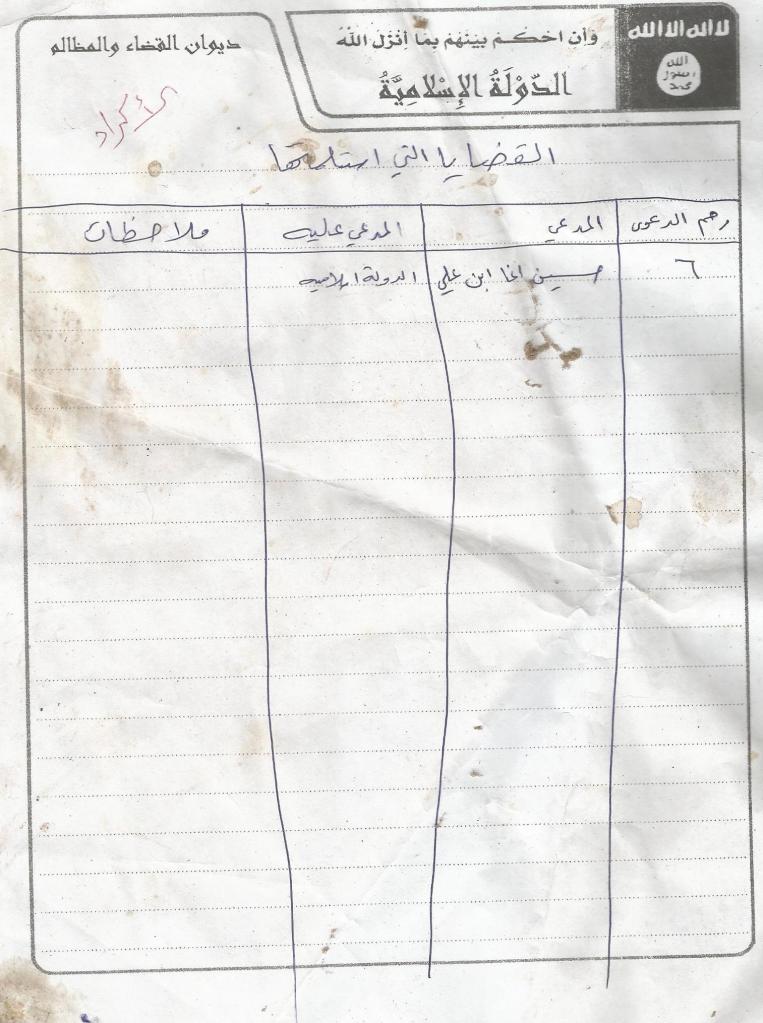 لا اله الا الله
الله
رسول
محمد
وَأَنِ احْكُمْ بَيْنَهُمْ بِمَا أَنْزَلَ اللَّهُ
الدَّوْلَةُ الإِسْلَامِيَّةُ
ديوان القضاء والمظالم
الأكراد
القضايا التي استلمتها
رقم الدعوى المدعي المدعي عاليه ملاحظات
٦ حسين اغا ابن علي الدولة الاسلاميه